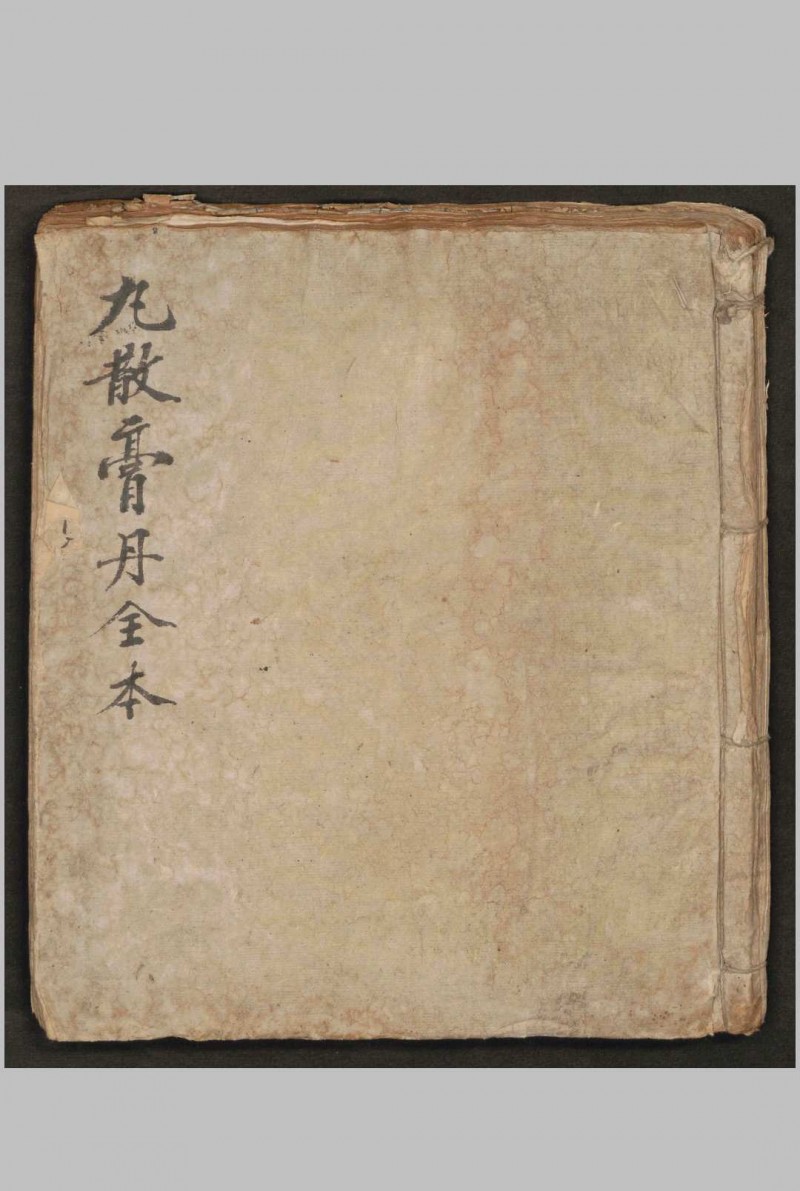 丸散膏丹全本